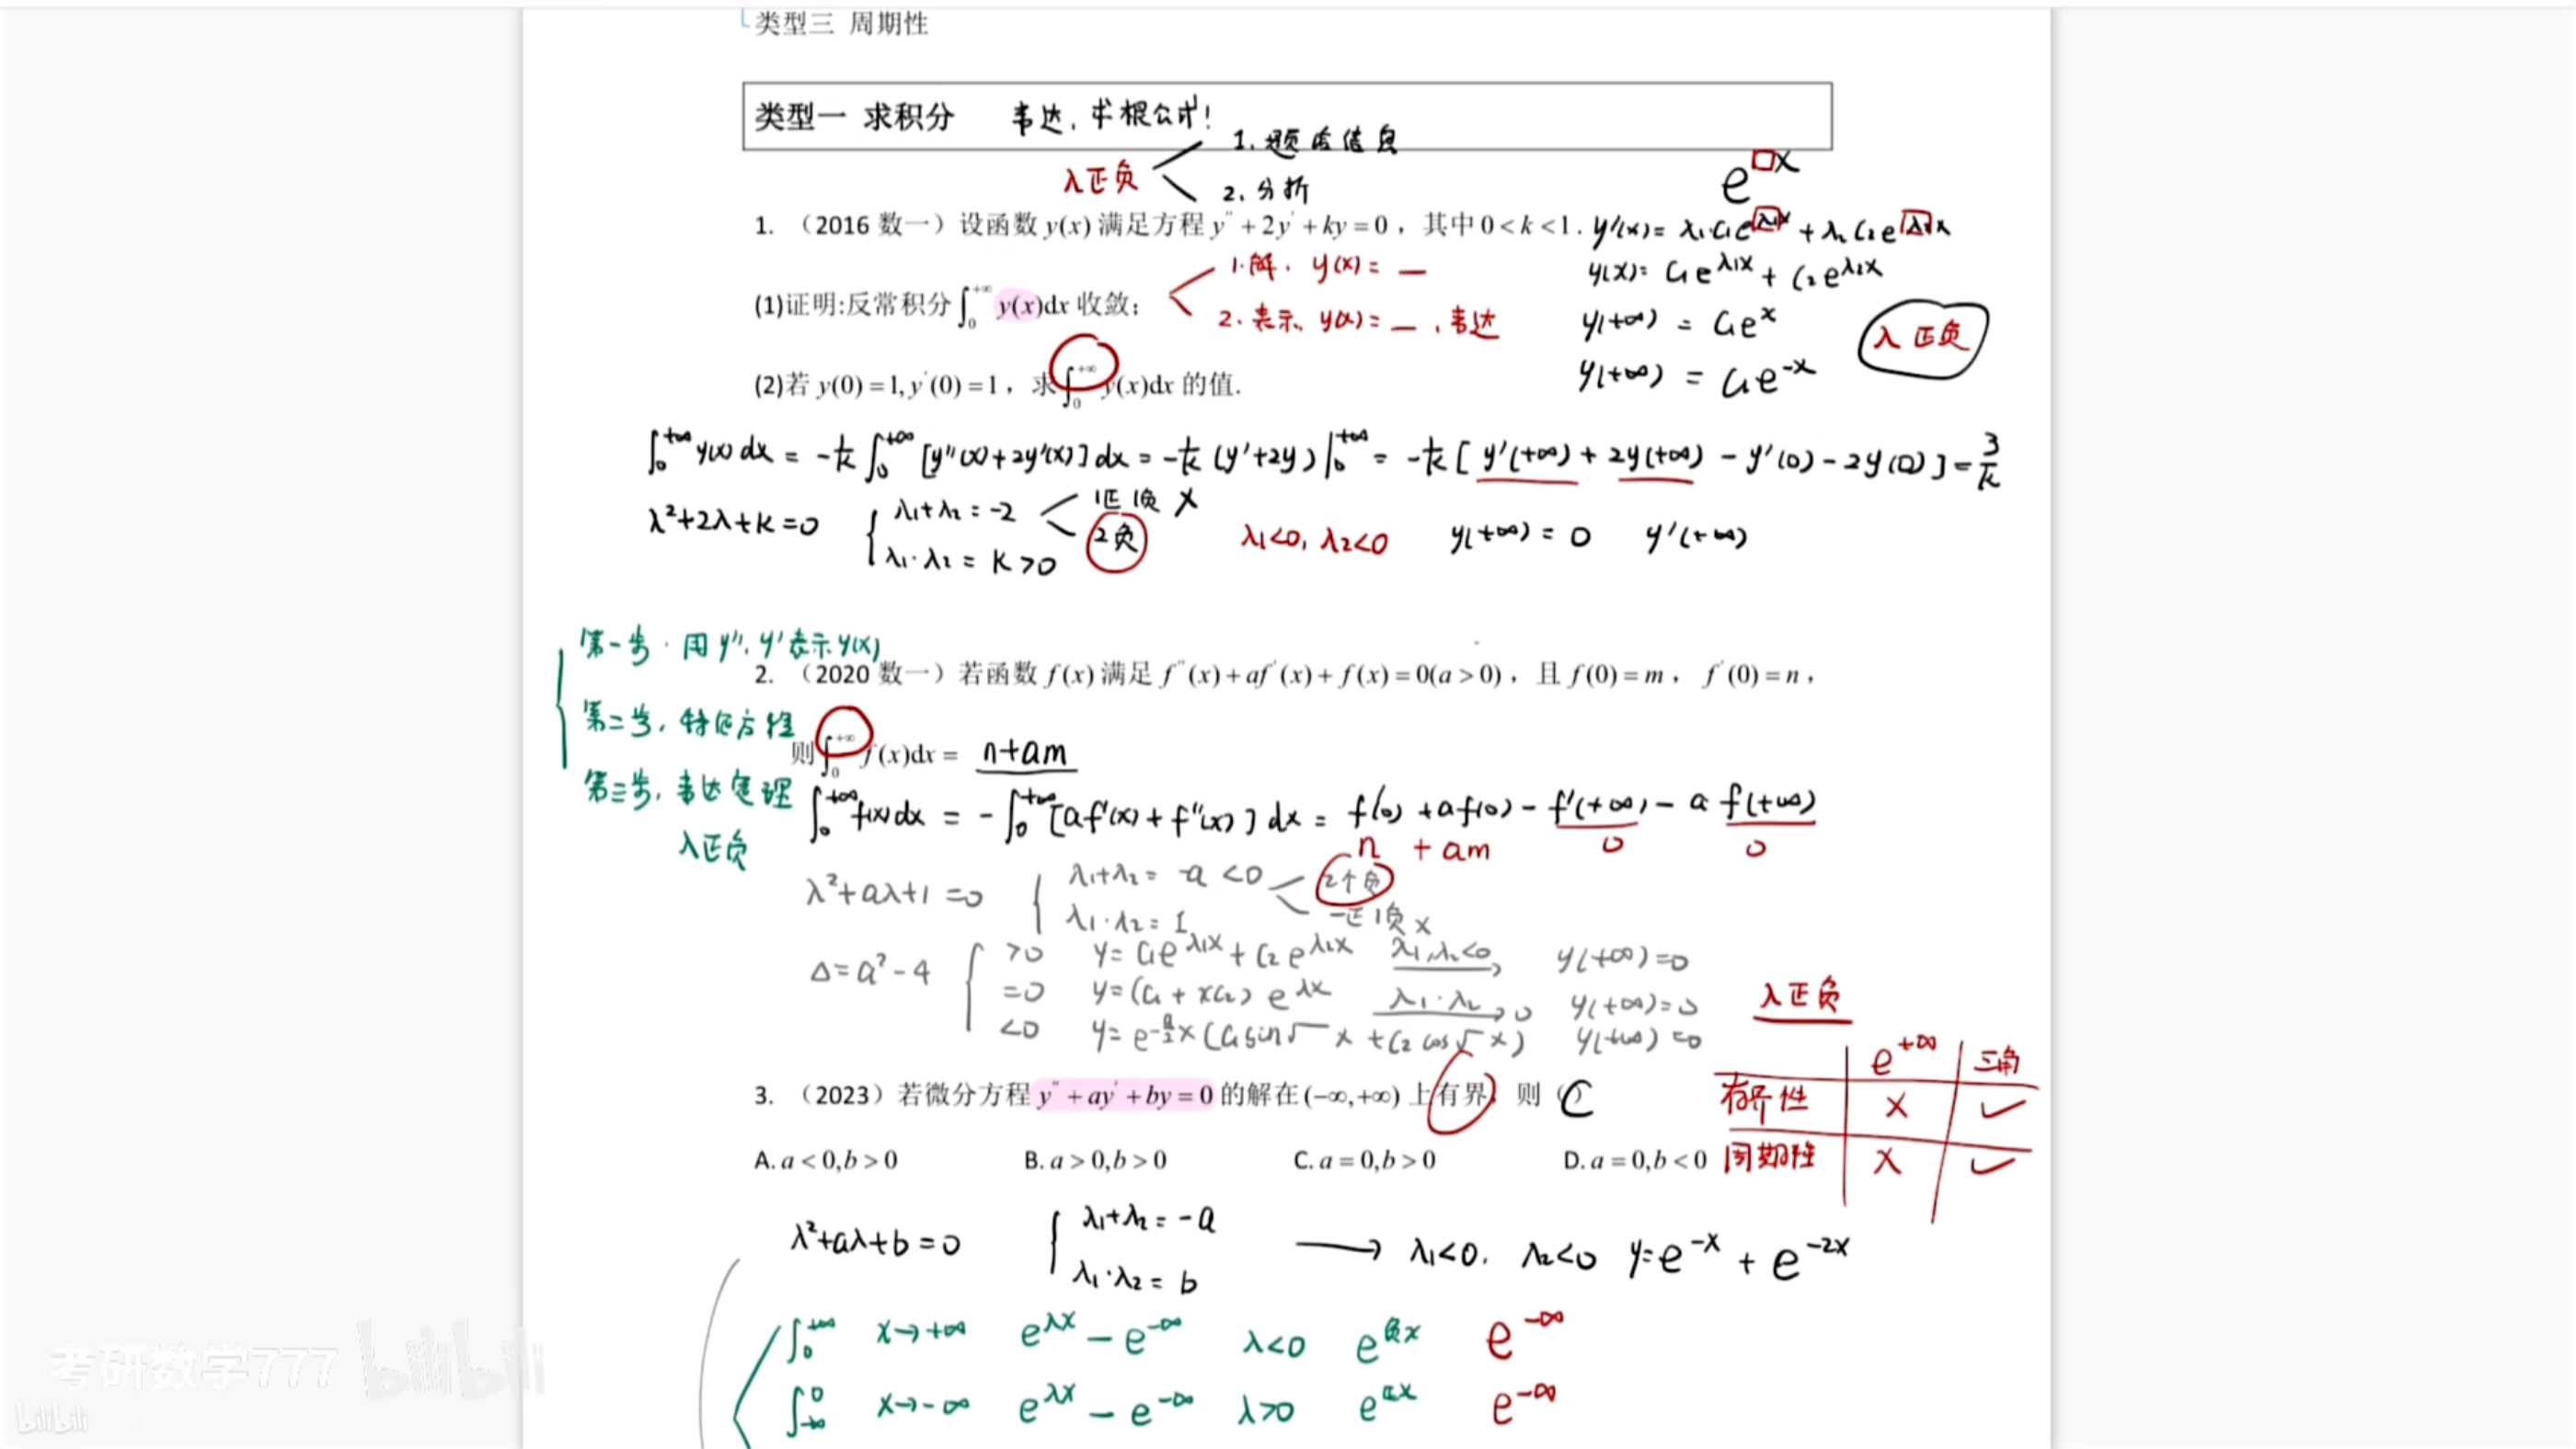 类型三 周期性
类型一 求积分 韦达，求根公式！
λ正负 1. 题给信息
2. 分析
e^□x
1. （2016 数一）设函数 y(x) 满足方程 y″ + 2y′ + ky = 0，其中 0 < k < 1.
y′(x) = λ₁C₁e^λ₁x + λ₂C₂e^λ₂x
y(x) = C₁e^λ₁x + C₂e^λ₂x
(1)证明:反常积分 ∫₀^+∞ y(x)dx 收敛；
1. 解. y(x) = —
2. 表示、y(x) = —，韦达
y(+∞) = C₁e^x
y(+∞) = C₁e^-x
λ 正负
(2)若 y(0) = 1, y′(0) = 1，求 ∫₀^+∞ y(x)dx 的值.
∫₀^+∞ y(x)dx = -1/k ∫₀^+∞ [y″(x)+2y′(x)]dx = -1/k (y′+2y)|₀^+∞ = -1/k [y′(+∞) + 2y(+∞) - y′(0) - 2y(0)] = 3/k
λ²+2λ+k=0 { λ₁+λ₂ = -2 1正1负 ×
λ₁·λ₂ = k>0 2负
λ₁<0, λ₂<0 y(+∞) = 0 y′(+∞)
第一步. 用 y″, y′表示y(x)
2. （2020 数一）若函数 f(x) 满足 f″(x) + af′(x) + f(x) = 0(a > 0)，且 f(0) = m， f′(0) = n，
第二步，特征方程
则 ∫₀^+∞ f(x)dx = n+am
第三步，韦达定理
λ正负
∫₀^+∞ f(x)dx = -∫₀^+∞ [af′(x) + f″(x)]dx = f′(0) + af(0) - f′(+∞) - a f(+∞)
n + am 0 0
λ²+aλ+1=0 { λ₁+λ₂ = -a <0 2个负
λ₁·λ₂ = 1 一正1负 ×
Δ=a²-4 { >0 y= C₁e^λ₁x + C₂e^λ₂x λ₁,λ₂<0 y(+∞)=0
=0 y=(C₁ + xC₂) e^λx λ₁·λ₂ 0 y(+∞)=0
<0 y= e^-a/2x (C₁sin√ x + C₂cos√ x) y(+∞)=0
λ正负
e^+∞ 三角
有界性 × ✓
周期性 × ✓
3. （2023）若微分方程 y″ + ay′ + by = 0 的解在 (−∞,+∞) 上有界，则（C）
A. a < 0, b > 0 B. a > 0, b > 0 C. a = 0, b > 0 D. a = 0, b < 0
λ²+aλ+b=0 { λ₁+λ₂ = -a
λ₁·λ₂ = b
→ λ₁<0, λ₂<0 y=e^-x + e^-2x
∫₀^+∞ x→+∞ e^λx – e^-∞ λ<0 e^负x e^-∞
∫₋∞^0 x→-∞ e^λx – e^-∞ λ>0 e^正x e^-∞
考研数学777 bilibili
bilibili